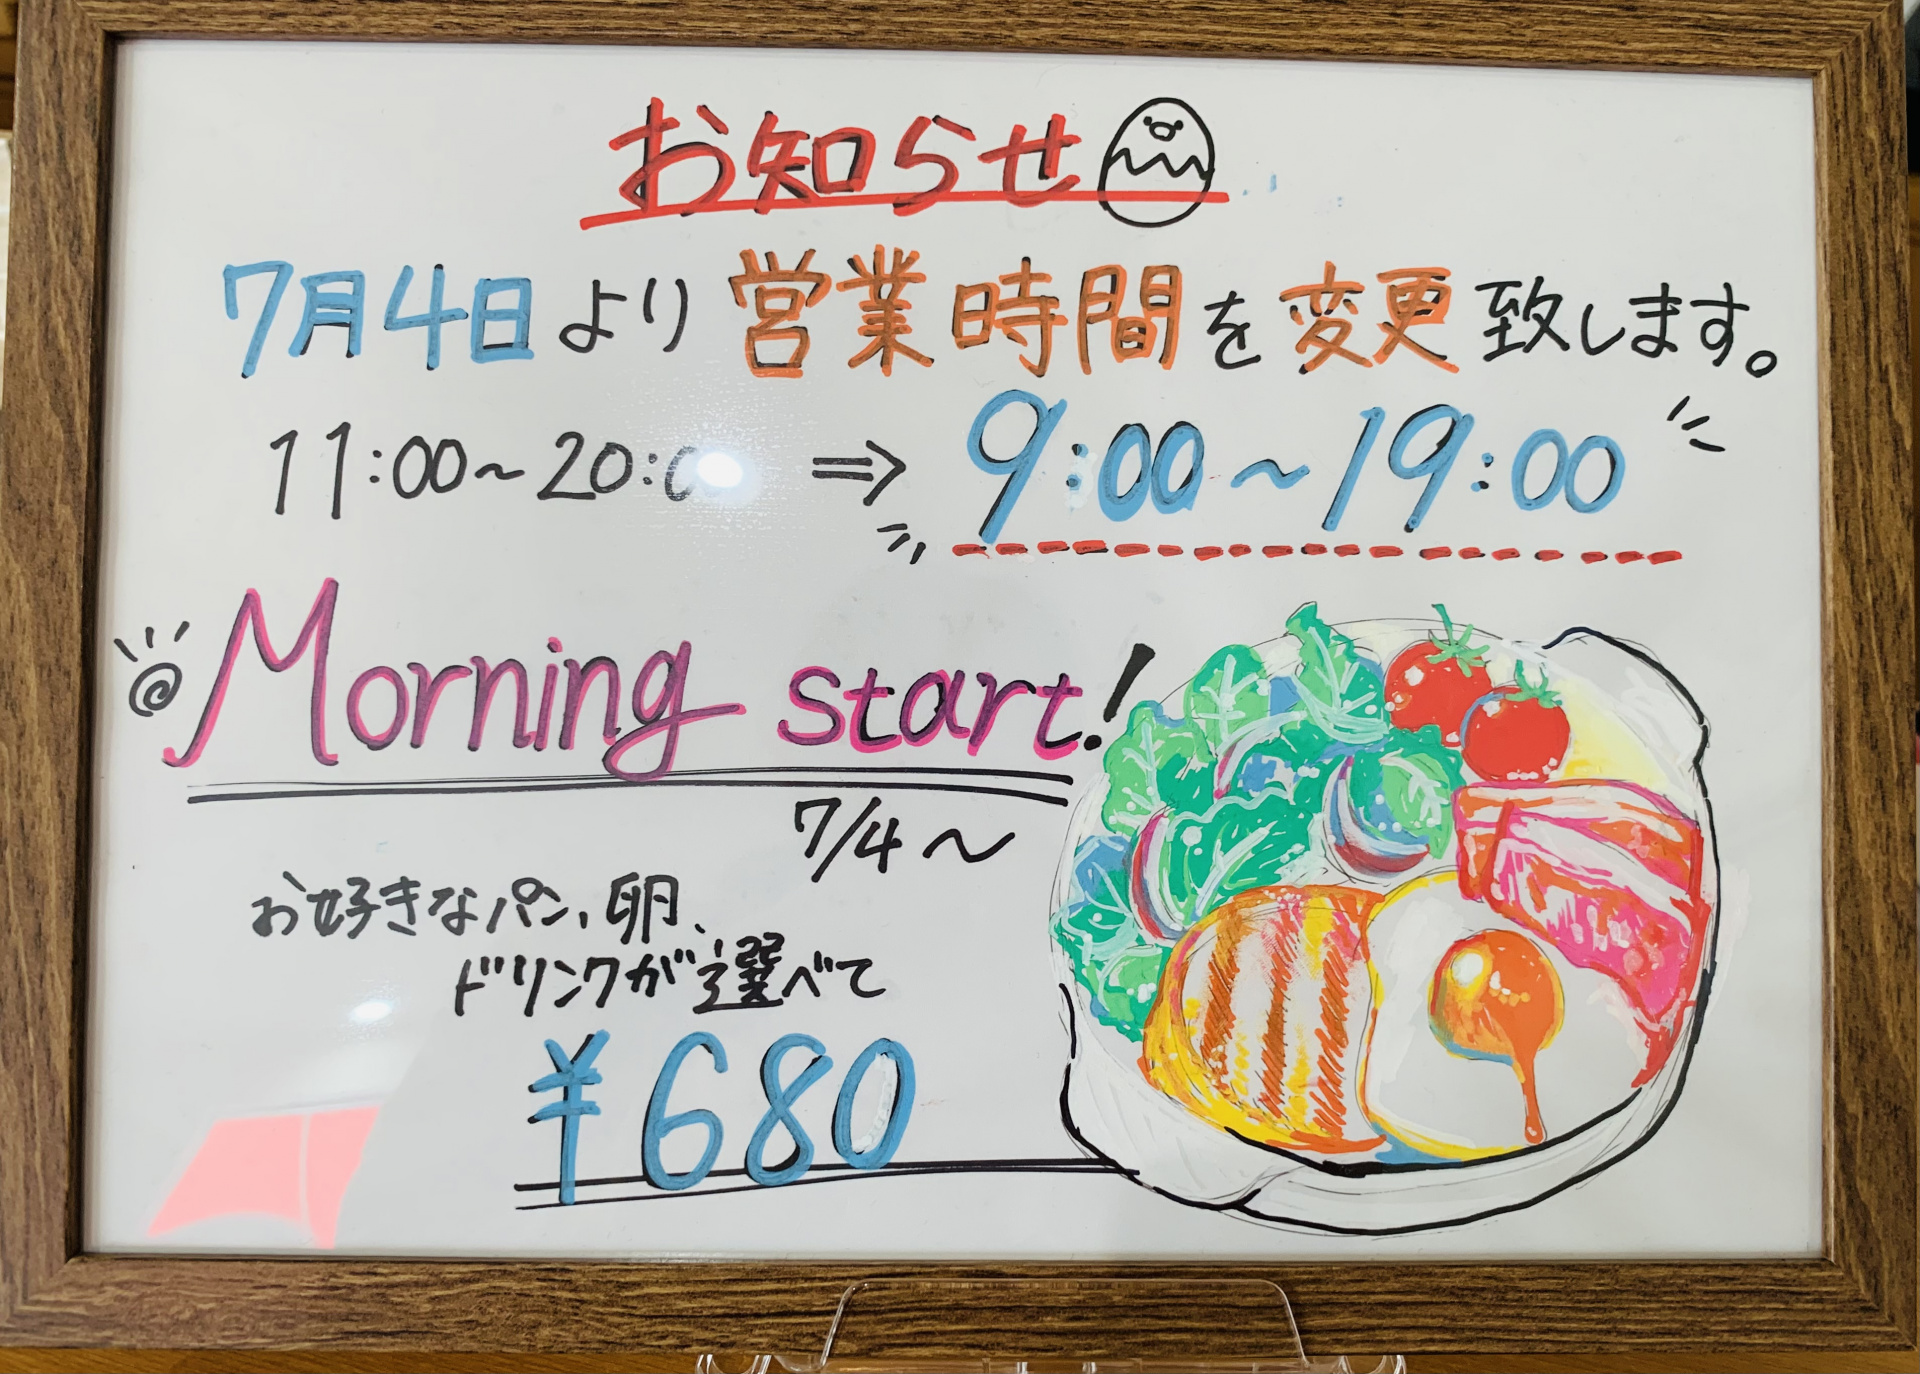 お知らせ
7月4日より営業時間を変更致します。
11:00~20:00 ⇒ 9:00~19:00
Morning start!
7/4~
お好きなパン、卵、
ドリンクが選べて
¥680